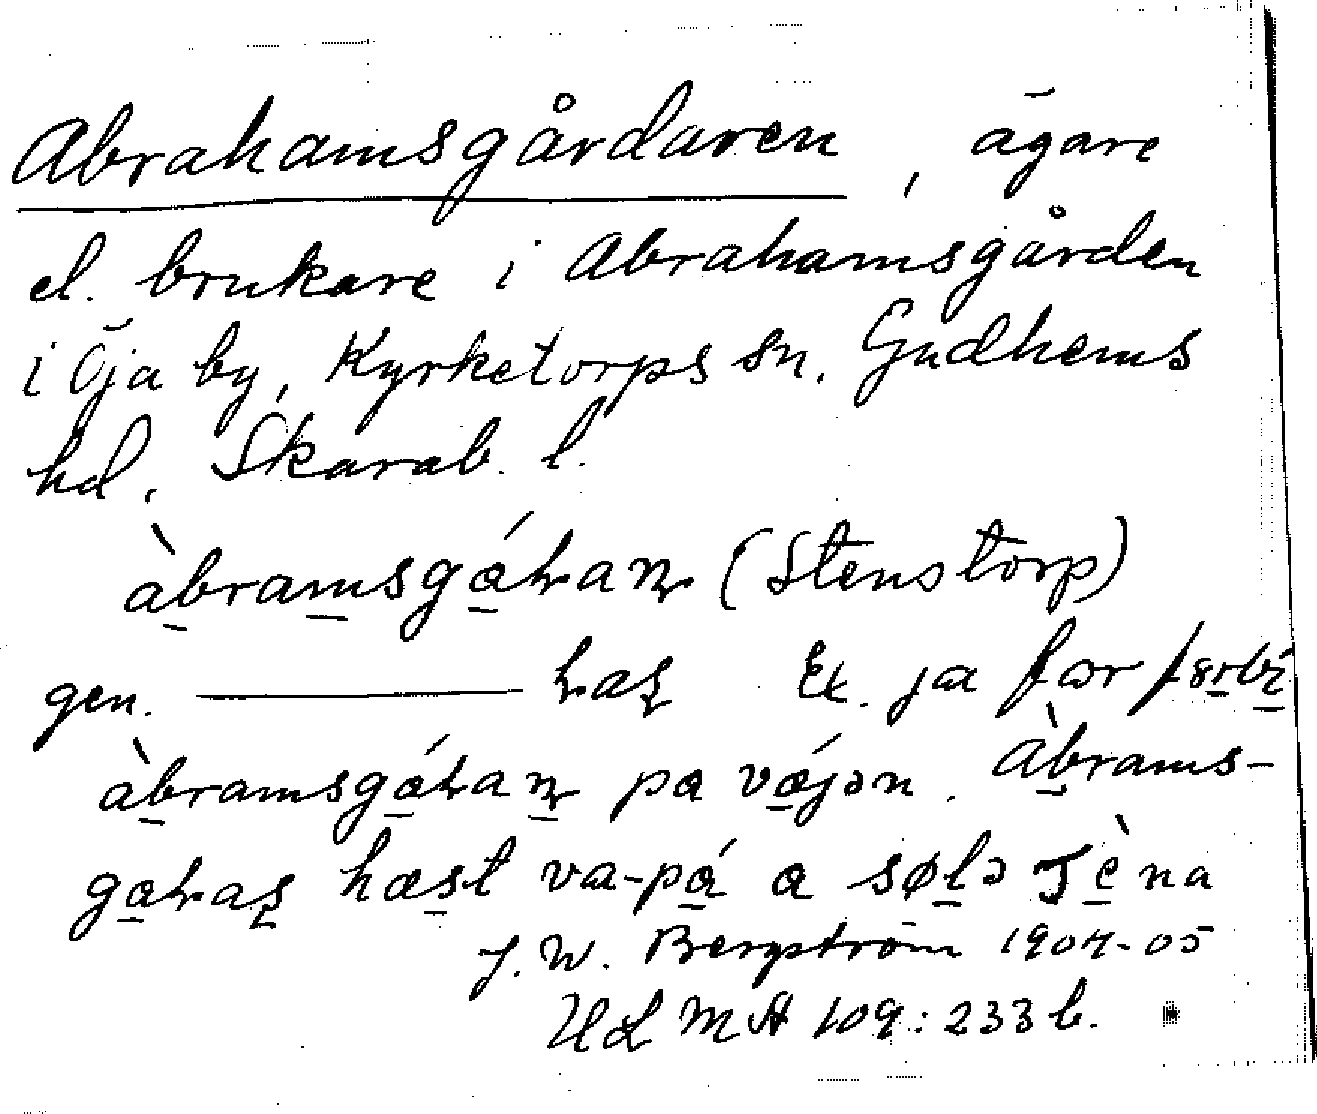 Abrahamsgårdaren, ägare
el. brukare i Abrahamsgården
i Öja by, Kyrketorps sn. Gudhems
hd. Skarab. l.
àbramsgáʀan (Stenstorp)
gen. ——— ʀas Ex. ja fœr
àbramsgáʀan pa vǽjən. Àbrams-
gaʀas hæst va-pá a sølə
J. W. Bergström 1904-05
ULMA 109:233 b.